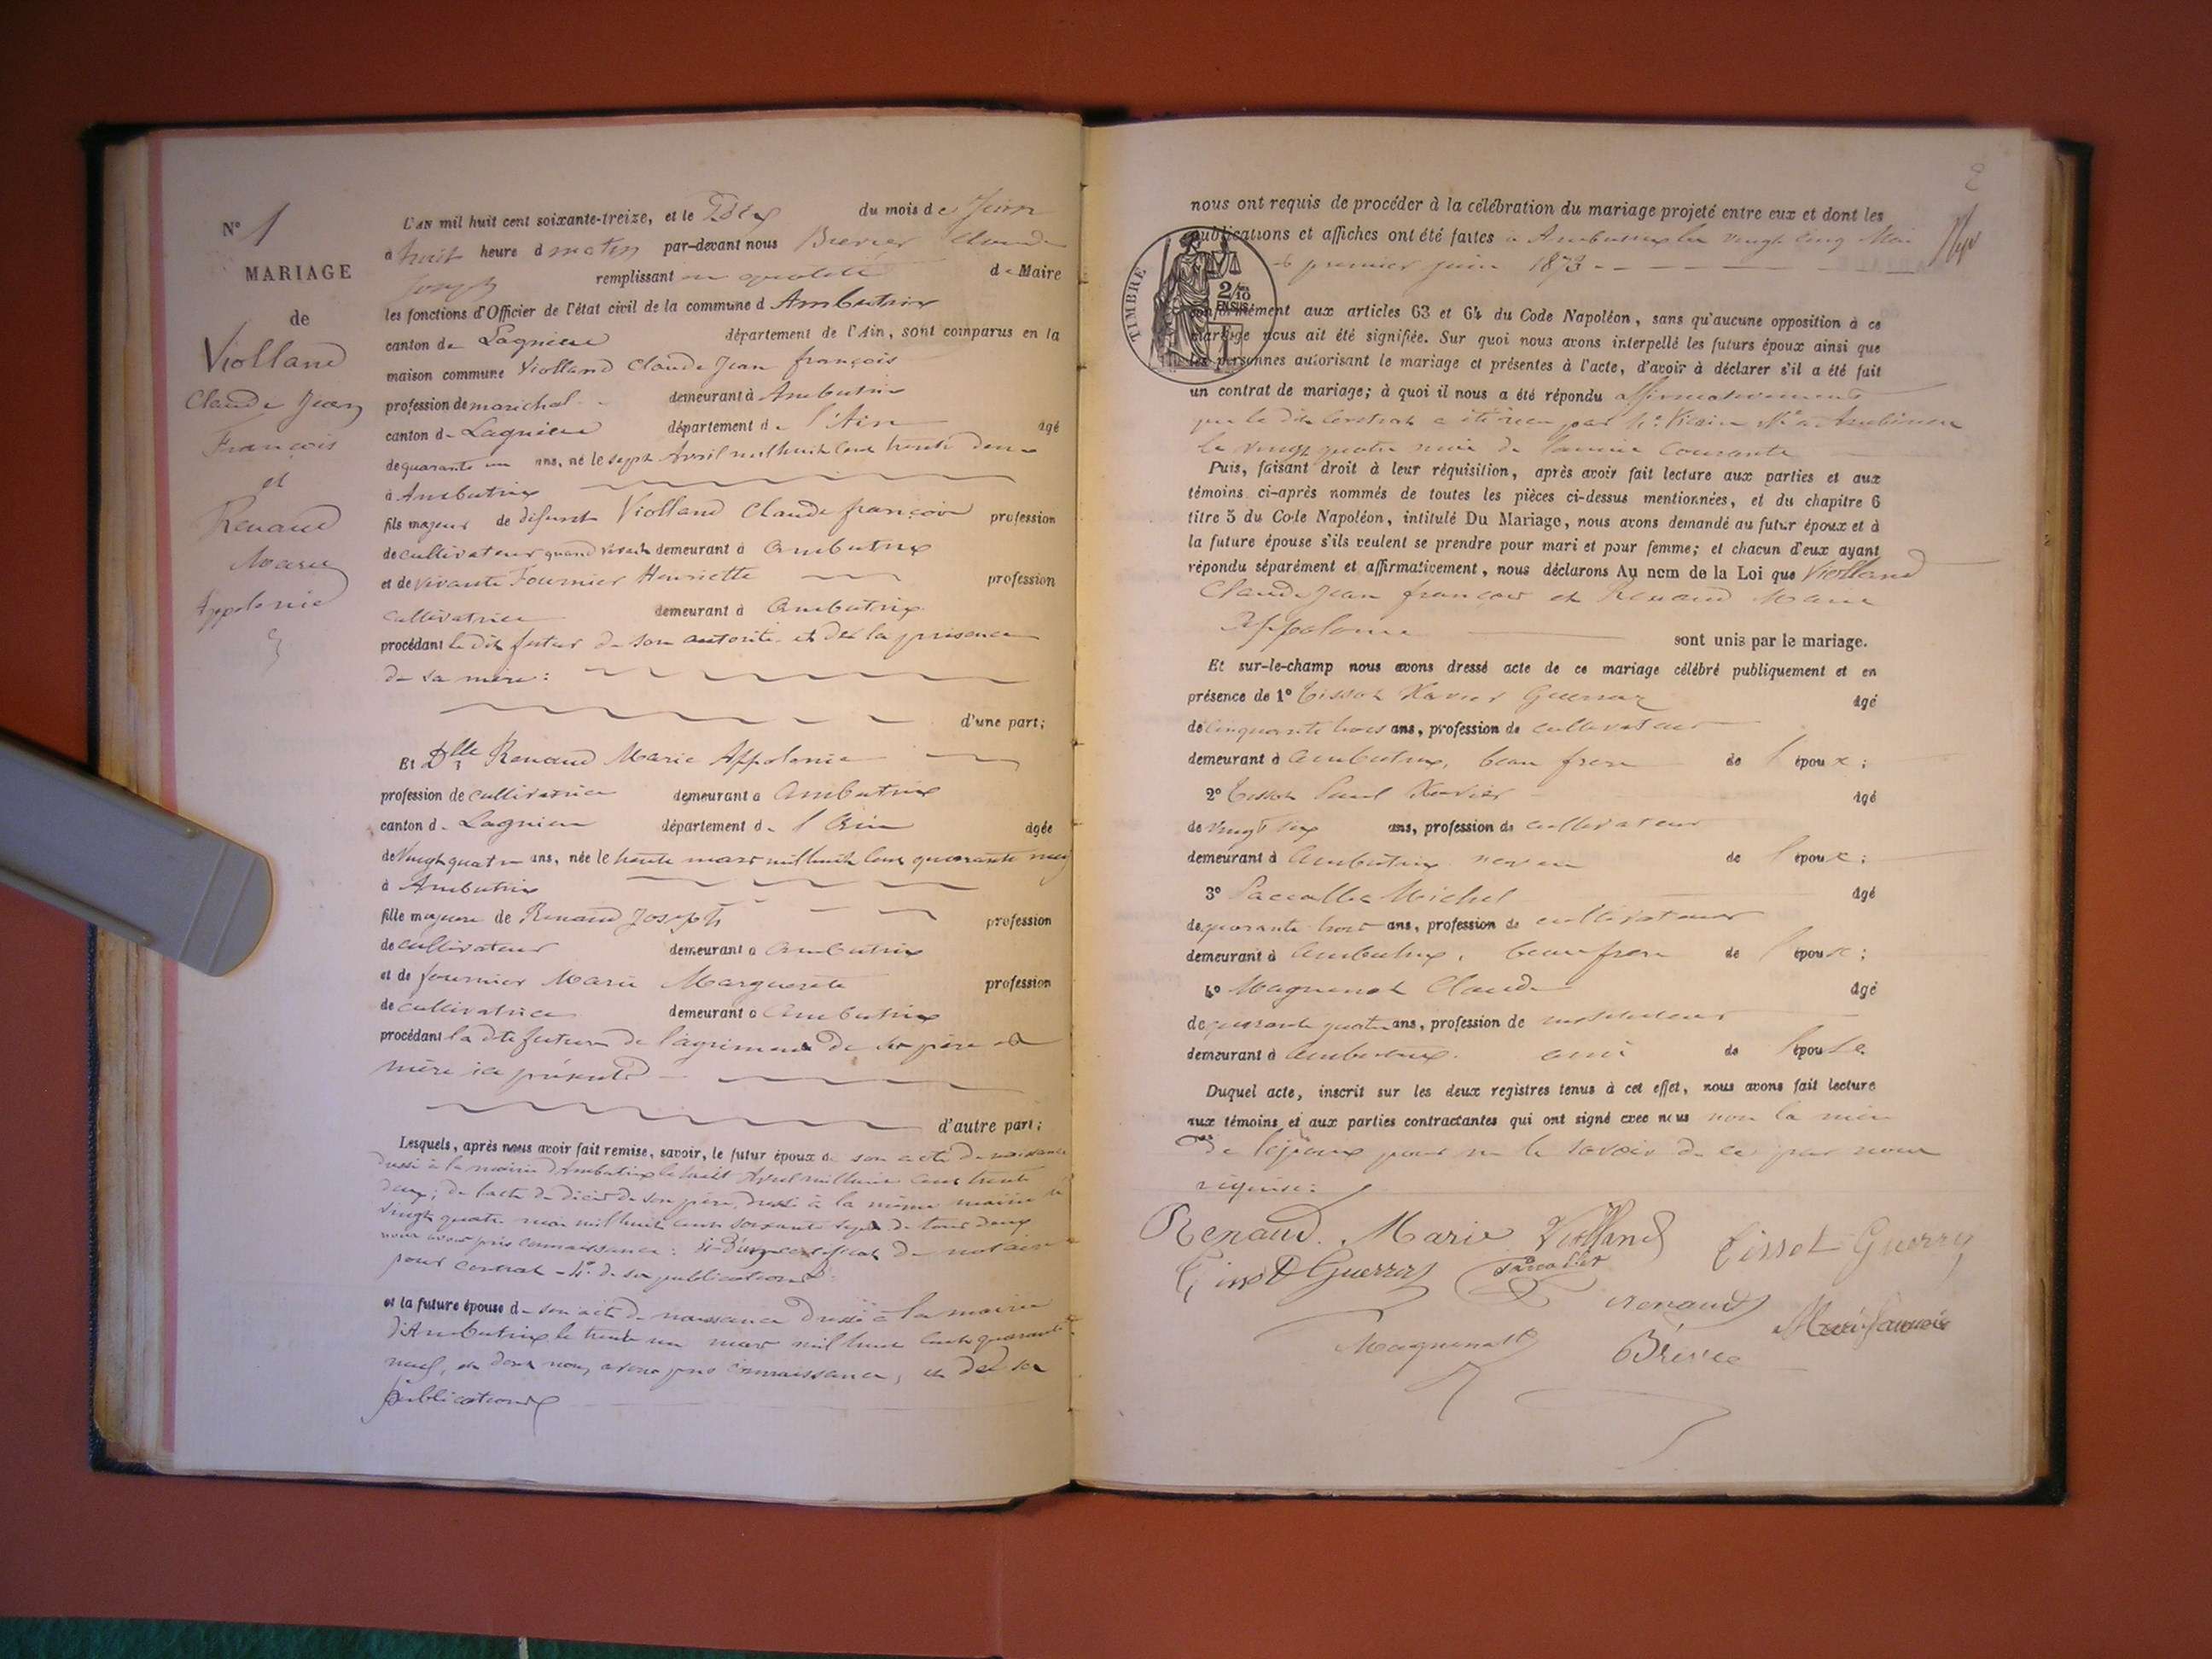 N° 1
MARIAGE
de
Violland
Claude Jean
François
et
Renaud
Marie
Appolonie
L'AN mil huit cent soixante-treize, et le du mois de Juin
à huit heure d matin par-devant nous Brevier Claude
Joseph remplissant en qualité de Maire
les fonctions d'Officier de l'état civil de la commune d Ambutrix
canton de Lagnieu département de l'Ain, sont comparus en la
maison commune Violland Claude Jean françois
profession de maréchal demeurant à Ambutrix
canton de Lagnieu département de l'Ain âgé
de quarante un ans, né le sept Avril mil huit cent trente deux
à Ambutrix
fils majeur de défunt Violland Claude françois profession
de cultivateur quand vivait demeurant à ambutrix
et de vivante Fournier Henriette profession
cultivatrice demeurant à ambutrix
procédant le dit futur de son autorité et de la présence
de sa mère :
d'une part ;
Et Dlle Renaud Marie Appolonie
profession de cultivatrice demeurant à ambutrix
canton de Lagnieu département de l'Ain âgée
de vingt quatre ans, née le trente mars mil huit cent quarante neuf
à Ambutrix
fille majeure de Renaud Joseph profession
de cultivateur demeurant à ambutrix
et de fournier Marie Marguerite profession
de cultivatrice demeurant à ambutrix
procédant la dite future de l'agrément de ses père et
mère ici présents
d'autre part ;
Lesquels, après nous avoir fait remise, savoir, le futur époux de son acte de naissance
dressé à la mairie d'Ambutrix le huit Avril mil huit cent trente
deux ; de l'acte de décès de son père, dressé à la même mairie le
vingt quatre mai mil huit cent soixante sept de tous deux
nous avons pris connaissance : certificat de notaire
pour contrat - 4° de ses publications
et la future épouse de son acte de naissance dressé à la mairie
d'Ambutrix le trente un mars mil huit cent quarante
neuf, et dont nous avons pris connaissance, et de ses
publications
2
nous ont requis de procéder à la célébration du mariage projeté entre eux et dont les
publications et affiches ont été faites à Ambutrix les vingt cinq Mai
et premier juin 1873
TIMBRE
2/10
EN SUS
conformément aux articles 63 et 64 du Code Napoléon, sans qu'aucune opposition à ce
mariage nous ait été signifiée. Sur quoi nous avons interpellé les futurs époux ainsi que
les personnes autorisant le mariage et présentes à l'acte, d'avoir à déclarer s'il a été fait
un contrat de mariage; à quoi il nous a été répondu affirmativement
que le dit contrat a été reçu par
le vingt quatre mai de l'année courante
Puis, faisant droit à leur réquisition, après avoir fait lecture aux parties et aux
témoins ci-après nommés de toutes les pièces ci-dessus mentionnées, et du chapitre 6
titre 5 du Code Napoléon, intitulé Du Mariage, nous avons demandé au futur époux et à
la future épouse s'ils veulent se prendre pour mari et pour femme; et chacun d'eux ayant
répondu séparément et affirmativement, nous déclarons Au nom de la Loi que Violland
Claude Jean françois et Renaud Marie
Appolonie sont unis par le mariage.
Et sur-le-champ nous avons dressé acte de ce mariage célébré publiquement et en
présence de 1° Tissot Xavier Guerraz âgé
de cinquante trois ans, profession de cultivateur
demeurant à ambutrix, beau frere de l'époux ;
2° Tissot Paul Xavier âgé
de vingt six ans, profession de cultivateur
demeurant à Ambutrix neveu de l'époux ;
3° Michel âgé
de quarante trois ans, profession de cultivateur
demeurant à Ambutrix, beau frere de l'époux ;
4° Magnenot Claude âgé
de quarante quatre ans, profession de instituteur
demeurant à ambutrix. ami de l'épouse
Duquel acte, inscrit sur les deux registres tenus à cet effet, nous avons fait lecture
aux témoins et aux parties contractantes qui ont signé avec nous non la mère
de l'époux pour ne le savoir de ce par nous
requise :
Renaud Marie Violland Tissot Guerraz
Tissot Guerraz
Renaud
Magnenot Brévier